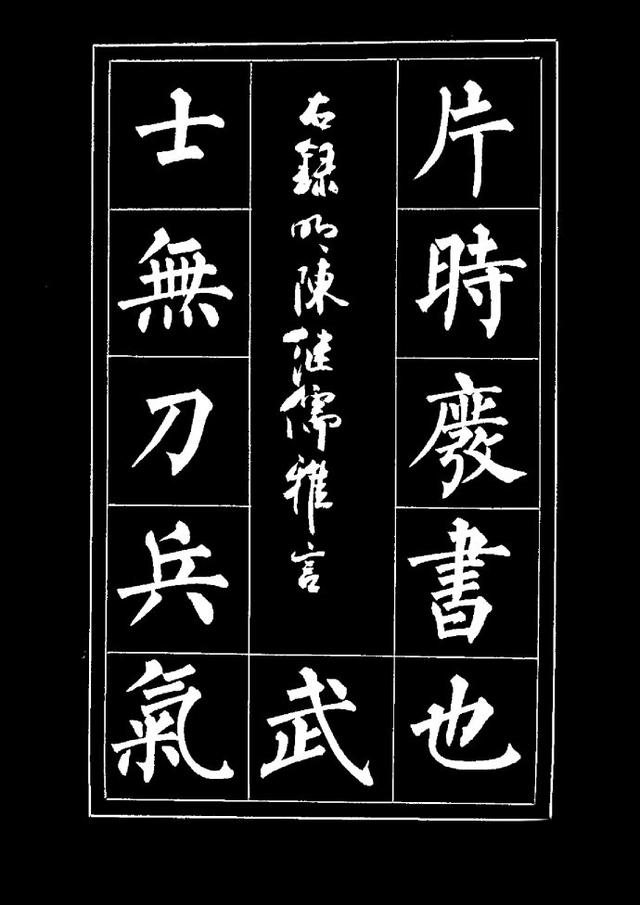 片時廢書也
右録明陳继儒雅言
武
士無刀兵氣